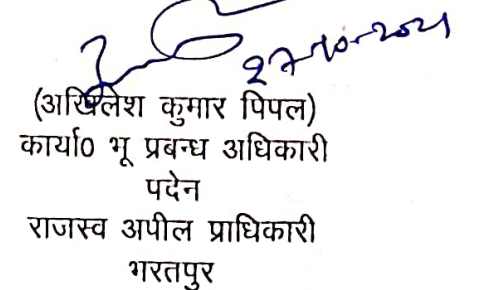 27-10-2021
(अखिलेश कुमार पिपल)
कार्या० भू प्रबन्ध अधिकारी
पदेन
राजस्व अपील प्राधिकारी
भरतपुर